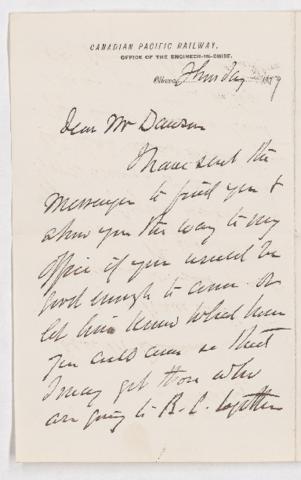 CANADIAN PACIFIC RAILWAY,
OFFICE OF THE ENGINEER-IN-CHIEF.
Ottawa, Thursday 1879
Dear Mr Dawson
I have sent the
messenger to find you &
show you the way to my
office if you would be
good enough to come or
let him know what hour
you could come so that
I may get those who
are going to B. C. together